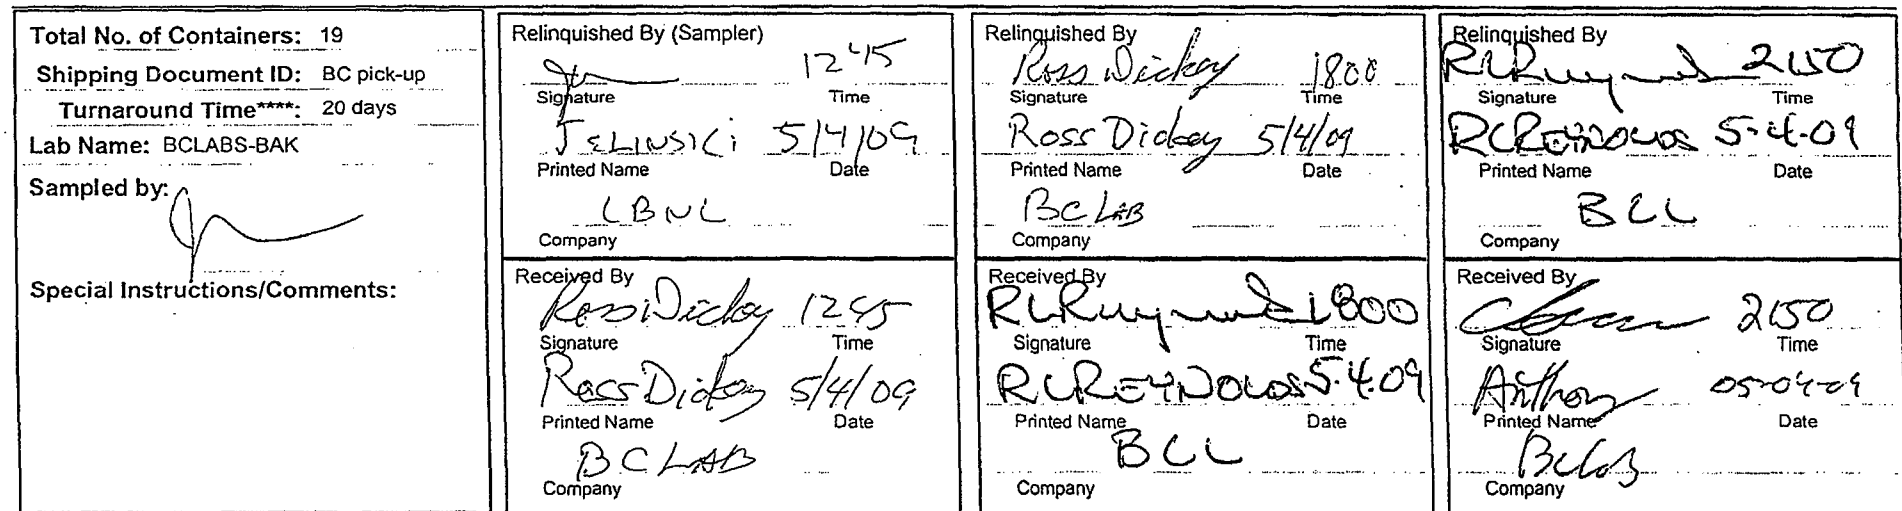 Total No. of Containers: 19
Shipping Document ID: BC pick-up
Turnaround Time****: 20 days
Lab Name: BCLABS-BAK
Sampled by:
Special Instructions/Comments:
Relinquished By (Sampler)
1245
Signature Time
JELINSKI 5/4/09
Printed Name Date
LBNL
Company
Received By
Ross Dickey 1245
Signature Time
Ross Dickey 5/4/09
Printed Name Date
BC LAB
Company
Relinquished By
Ross Dickey 1800
Signature Time
Ross Dickey 5/4/09
Printed Name Date
BC LAB
Company
Received By
RLReynolds 1800
Signature Time
RLREYNOLDS 5.4.09
Printed Name Date
BCL
Company
Relinquished By
RLReynolds 2150
Signature Time
RLREYNOLDS 5-4-09
Printed Name Date
BCL
Company
Received By
2150
Signature Time
Anthony 05-04-09
Printed Name Date
BCLab
Company